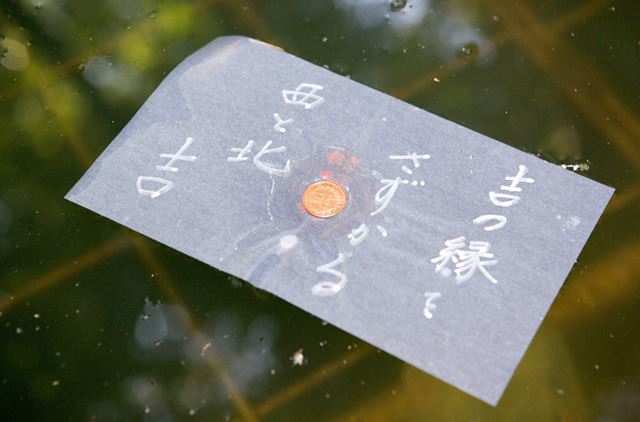 吉つ縁を
さずかる
西と北
吉